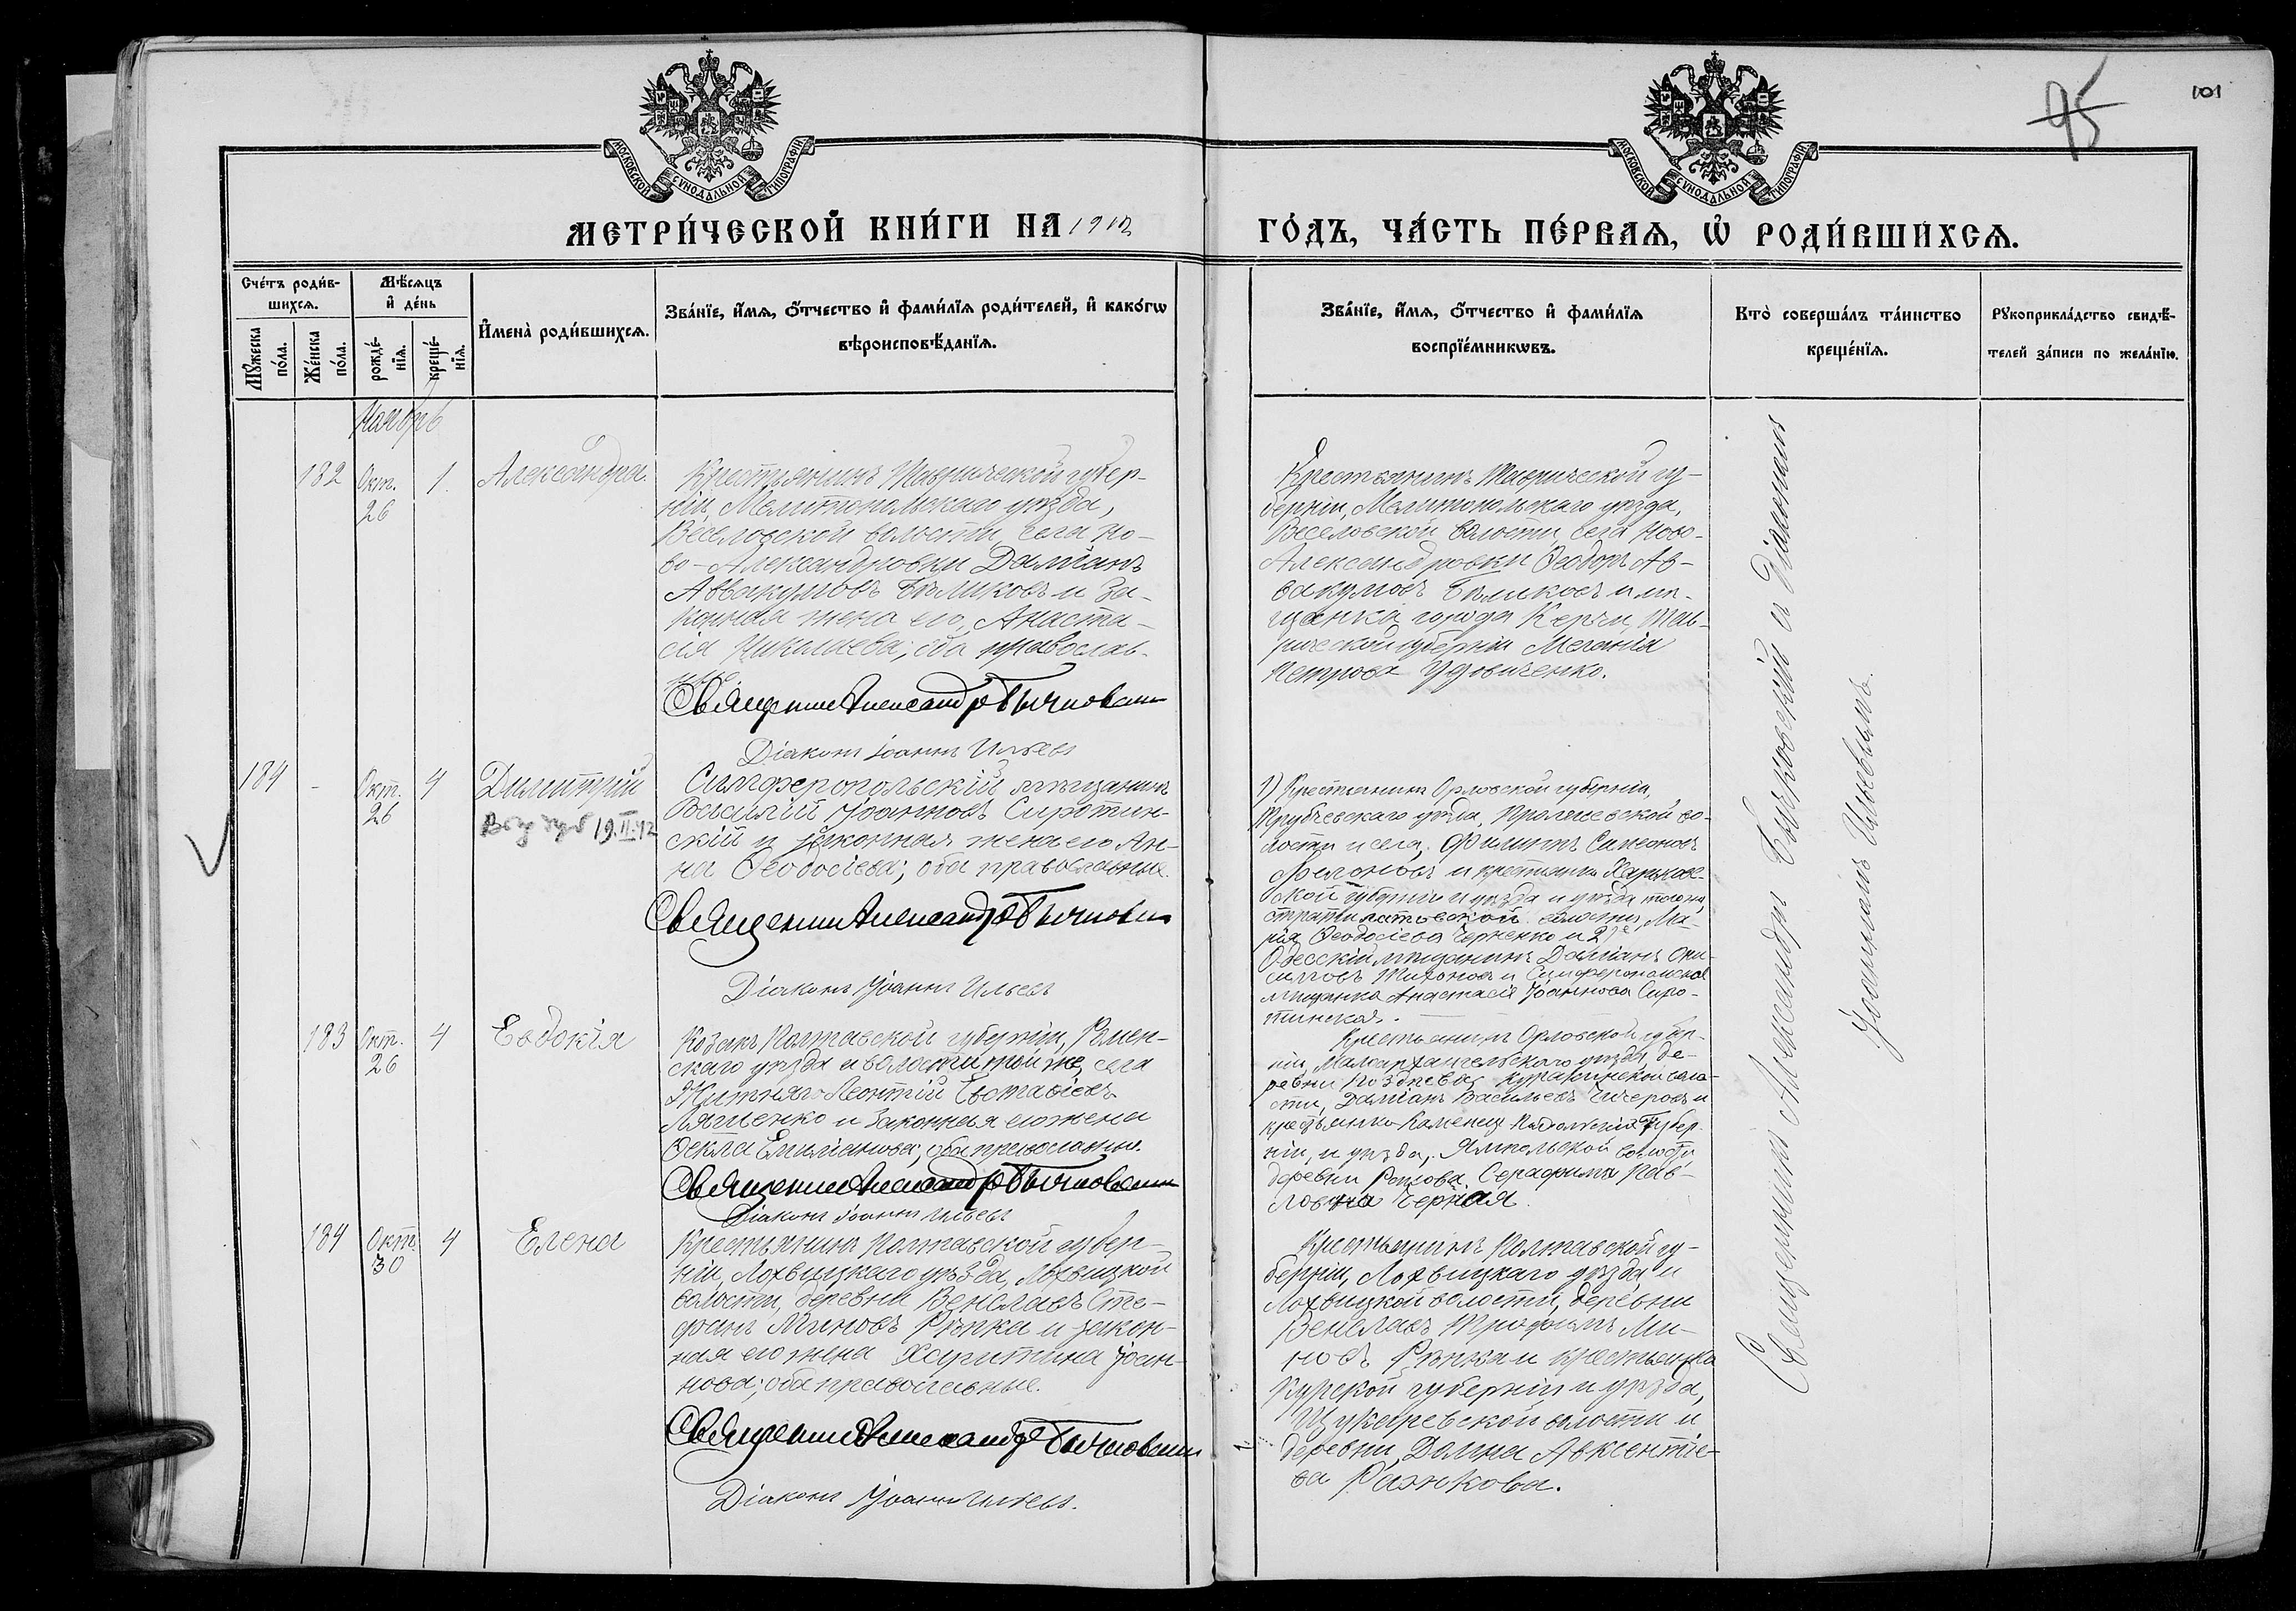 95
101
МОСКОВСКОЙ СѴНОДАЛЬНОЙ ТИПОГРАФІИ
МОСКОВСКОЙ СѴНОДАЛЬНОЙ ТИПОГРАФІИ
МЕТРИ́ЧЕСКОЙ КНИ́ГИ НА 1912
ГО́ДЪ, ЧА́СТЬ ПЕ́РВАЯ, Ѡ РОДИ́ВШИХСЯ.
Сче́тъ роди́в-
шихся.
Мѣ́сяцъ
и де́нь
Мꙋ́жеска по́ла.
Же́нска по́ла.
рожде́-
нїя.
креще́-
нїя.
И҆мена̀ роди́вшихся.
Зва́нїе, и҆́мя, ѻ҆́тчество и҆ фами́лїя роди́телей, и҆ како́гѡ
вѣроисповѣ́данїя.
Зва́нїе, и҆́мя, ѻ҆́тчество и҆ фами́лїя
воспрїе́мникѡвъ.
Кто̀ соверша́лъ та́инство
креще́нїя.
Рꙋкоприкла́дство свидѣ́-
телей за́писи по жела́нїю.
Ноябрь
182 Окт. 26 1. Александра.
Крестьянинъ Таврической губер-
ніи, Мелитопольскаго уѣзда,
Веселовской волости, села Но-
во-Александровки Даміанъ
Аввакумовъ Бѣликовъ и за-
конная жена его, Анаста-
сія Николаева; оба православ-
ные.
Священникъ Александръ Бычковскій
Діаконъ Іоаннъ Ильевъ
Крестьянинъ Таврической гу-
берніи, Мелитопольскаго уѣзда,
Веселовской волости, села Ново-
Александровки Ѳеодоръ Ав-
вакумовъ Бѣликовъ и мѣ-
щанка города Керчи, Тав-
рической губерніи Меланія
Петрова Удовиченко.
184 - Окт. 26 4 Димитрій
19.II.12
Симферопольскій мѣщанинъ
Василій Іоанновъ Сиротин-
скій и законная жена его Ан-
на Ѳеодосіева; оба православные.
Священникъ Александръ Бычковскій
Діаконъ Іоаннъ Ильевъ
1) Крестьянинъ Орловской губерніи,
Трубчевскаго уѣзда,
волости и села, Филиппъ Симоновъ
Филоновъ и крестьянка Харьков-
ской губерніи и уѣзда
волости, Ма-
рія Ѳеодосіева Черненко и 2)
Одесскій мѣщанинъ Даміанъ Они-
симовъ Тихоновъ и Симферопольская
мѣщанка Анастасія Іоаннова Сиро-
тинская.
183 Окт. 26 4 Евдокія
Козакъ Полтавской губерніи, Ромен-
скаго уѣзда и волости той же, села
Житняго Леонтій Евстафіевъ
Ляшенко и законная его жена
Ѳекла Емиліанова; оба православные.
Священникъ Александръ Бычковскій
Діаконъ Іоаннъ Ильевъ
Крестьянинъ Орловской губер-
ніи, Малоархангельскаго уѣзда, де-
ревни Позднева, Куракинской воло-
сти, Даміанъ Васильевъ Чичеровъ и
крестьянка Каменец Подольской Губер-
ніи, и уѣзда, Ямпольской волости
деревни Серафима Пав-
ловна Черная.
184 Окт. 30 4 Елена
Крестьянинъ Полтавской губер-
ніи, Лохвицкаго уѣзда, Лохвицкой
волости, деревни Венславъ Сте-
фанъ Миновъ Рѣпка и закон-
ная его жена Харитина Іоан-
нова; оба православные.
Священникъ Александръ Бычковскій
Діаконъ Іоаннъ Ильевъ.
Крестьянинъ Полтавской гу-
берніи, Лохвицкаго уѣзда и
Лохвицкой волости, деревни
Венславъ Трофимъ Ми-
новъ Рѣпка и крестьянка
Курской губерніи и уѣзда,
волости и
деревни, Домна Авксентіе-
ва Разнкова.
Священникъ Александръ Бычковскій и Діаконъ
Іоаннъ Ильевымъ.